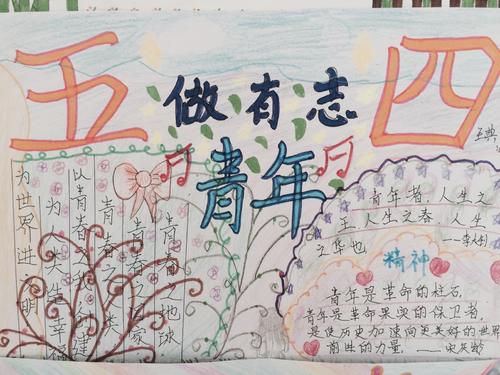 五
四
做有志
青年
为世界进文明
为人类造幸福
以青春之我创建
青春之人类
青春之国家
青春之地球
青年者,人生之
王,人生之春,人生
之华也 ——李大钊
精神
青年是革命的柱石,
青年是革命果实的保卫者,
是使历史加速向更美好的世界
前进的力量。——宋庆龄